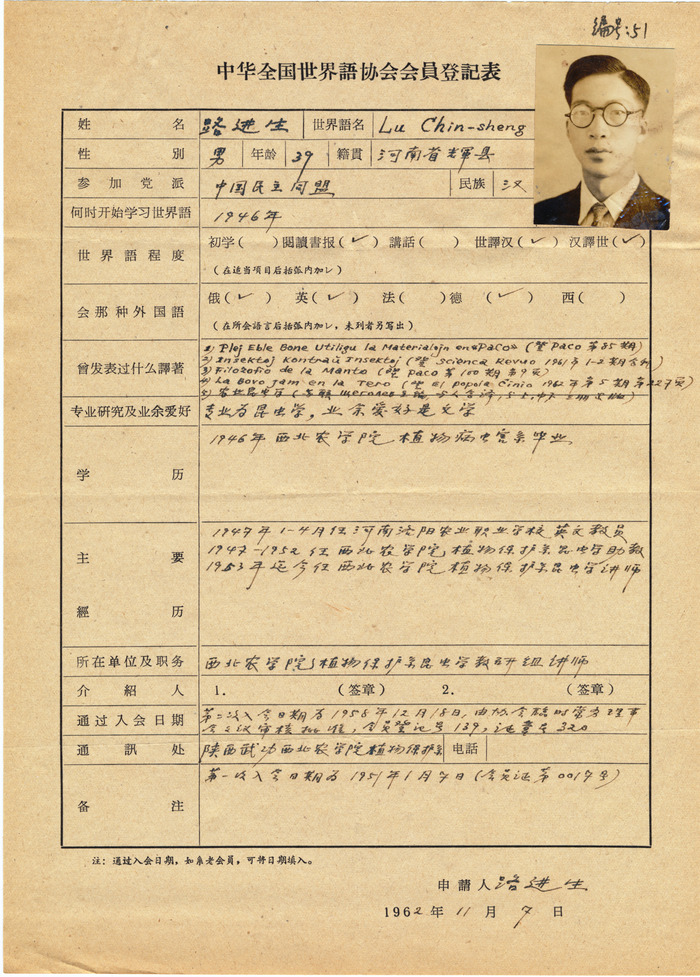 编号:51
中华全国世界語协会会員登記表
姓名 路进生 世界語名 Lu Chin-sheng
性別 男 年龄 39 籍貫 河南省辉县
参加党派 中国民主同盟 民族 汉
何时开始学习世界語 1946年
世界語程度 初学( ) 閱讀書报(✓) 講話( ) 世譯汉(✓) 汉譯世(✓)
(在适当項目后括弧内加✓)
会那种外国語 俄(✓) 英(✓) 法( ) 德(✓) 西( )
(在所会語言后括弧内加✓,未列者另写出)
曾发表过什么譯著 1) Plej Eble Bone Utiligu la Materialojn en «Paco» (登 Paco 第85期)
2) Insektoj Kontraŭ Insektoj (登 Scienca Revuo 1961年1-2期合刊)
3) Filozofio de la Manto (登 Paco 第100期第9页)
4) La Bovo Jam en la Tero (登 El Popola Ĉinio 1962年第5期第227页)
5) 农业昆虫学
专业研究及业余爱好 专业为昆虫学,业余爱好是文学
学历 1946年西北农学院植物病虫害系毕业
主要經历 1947年1-4月任河南洛阳农业职业学校英文教员
1947-1952任西北农学院植物保护系昆虫学助教
1953年迄今任西北农学院植物保护系昆虫学讲师
所在单位及职务 西北农学院植物保护系昆虫学教研组讲师
介紹人 1. (签章) 2. (签章)
通过入会日期 第二次入会日期为1958年12月18日,由协会临时常务理事
会会议审核批准,会员登记号139,证章号320
通訊处 陕西武功西北农学院植物保护系 电話
备注 第一次入会日期为1951年1月7日(会员证第0017号)
注:通过入会日期,如系老会員,可将日期填入。
申請人 路进生
1962年11月7日